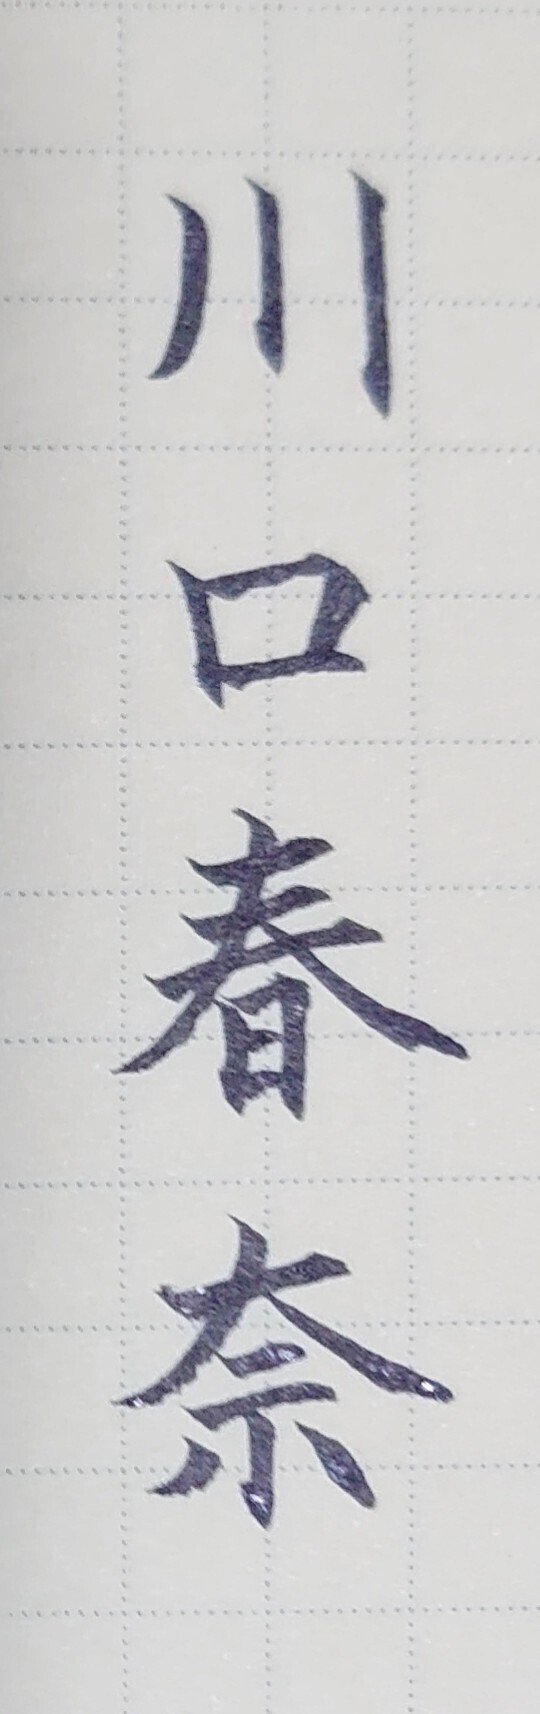 川口春奈